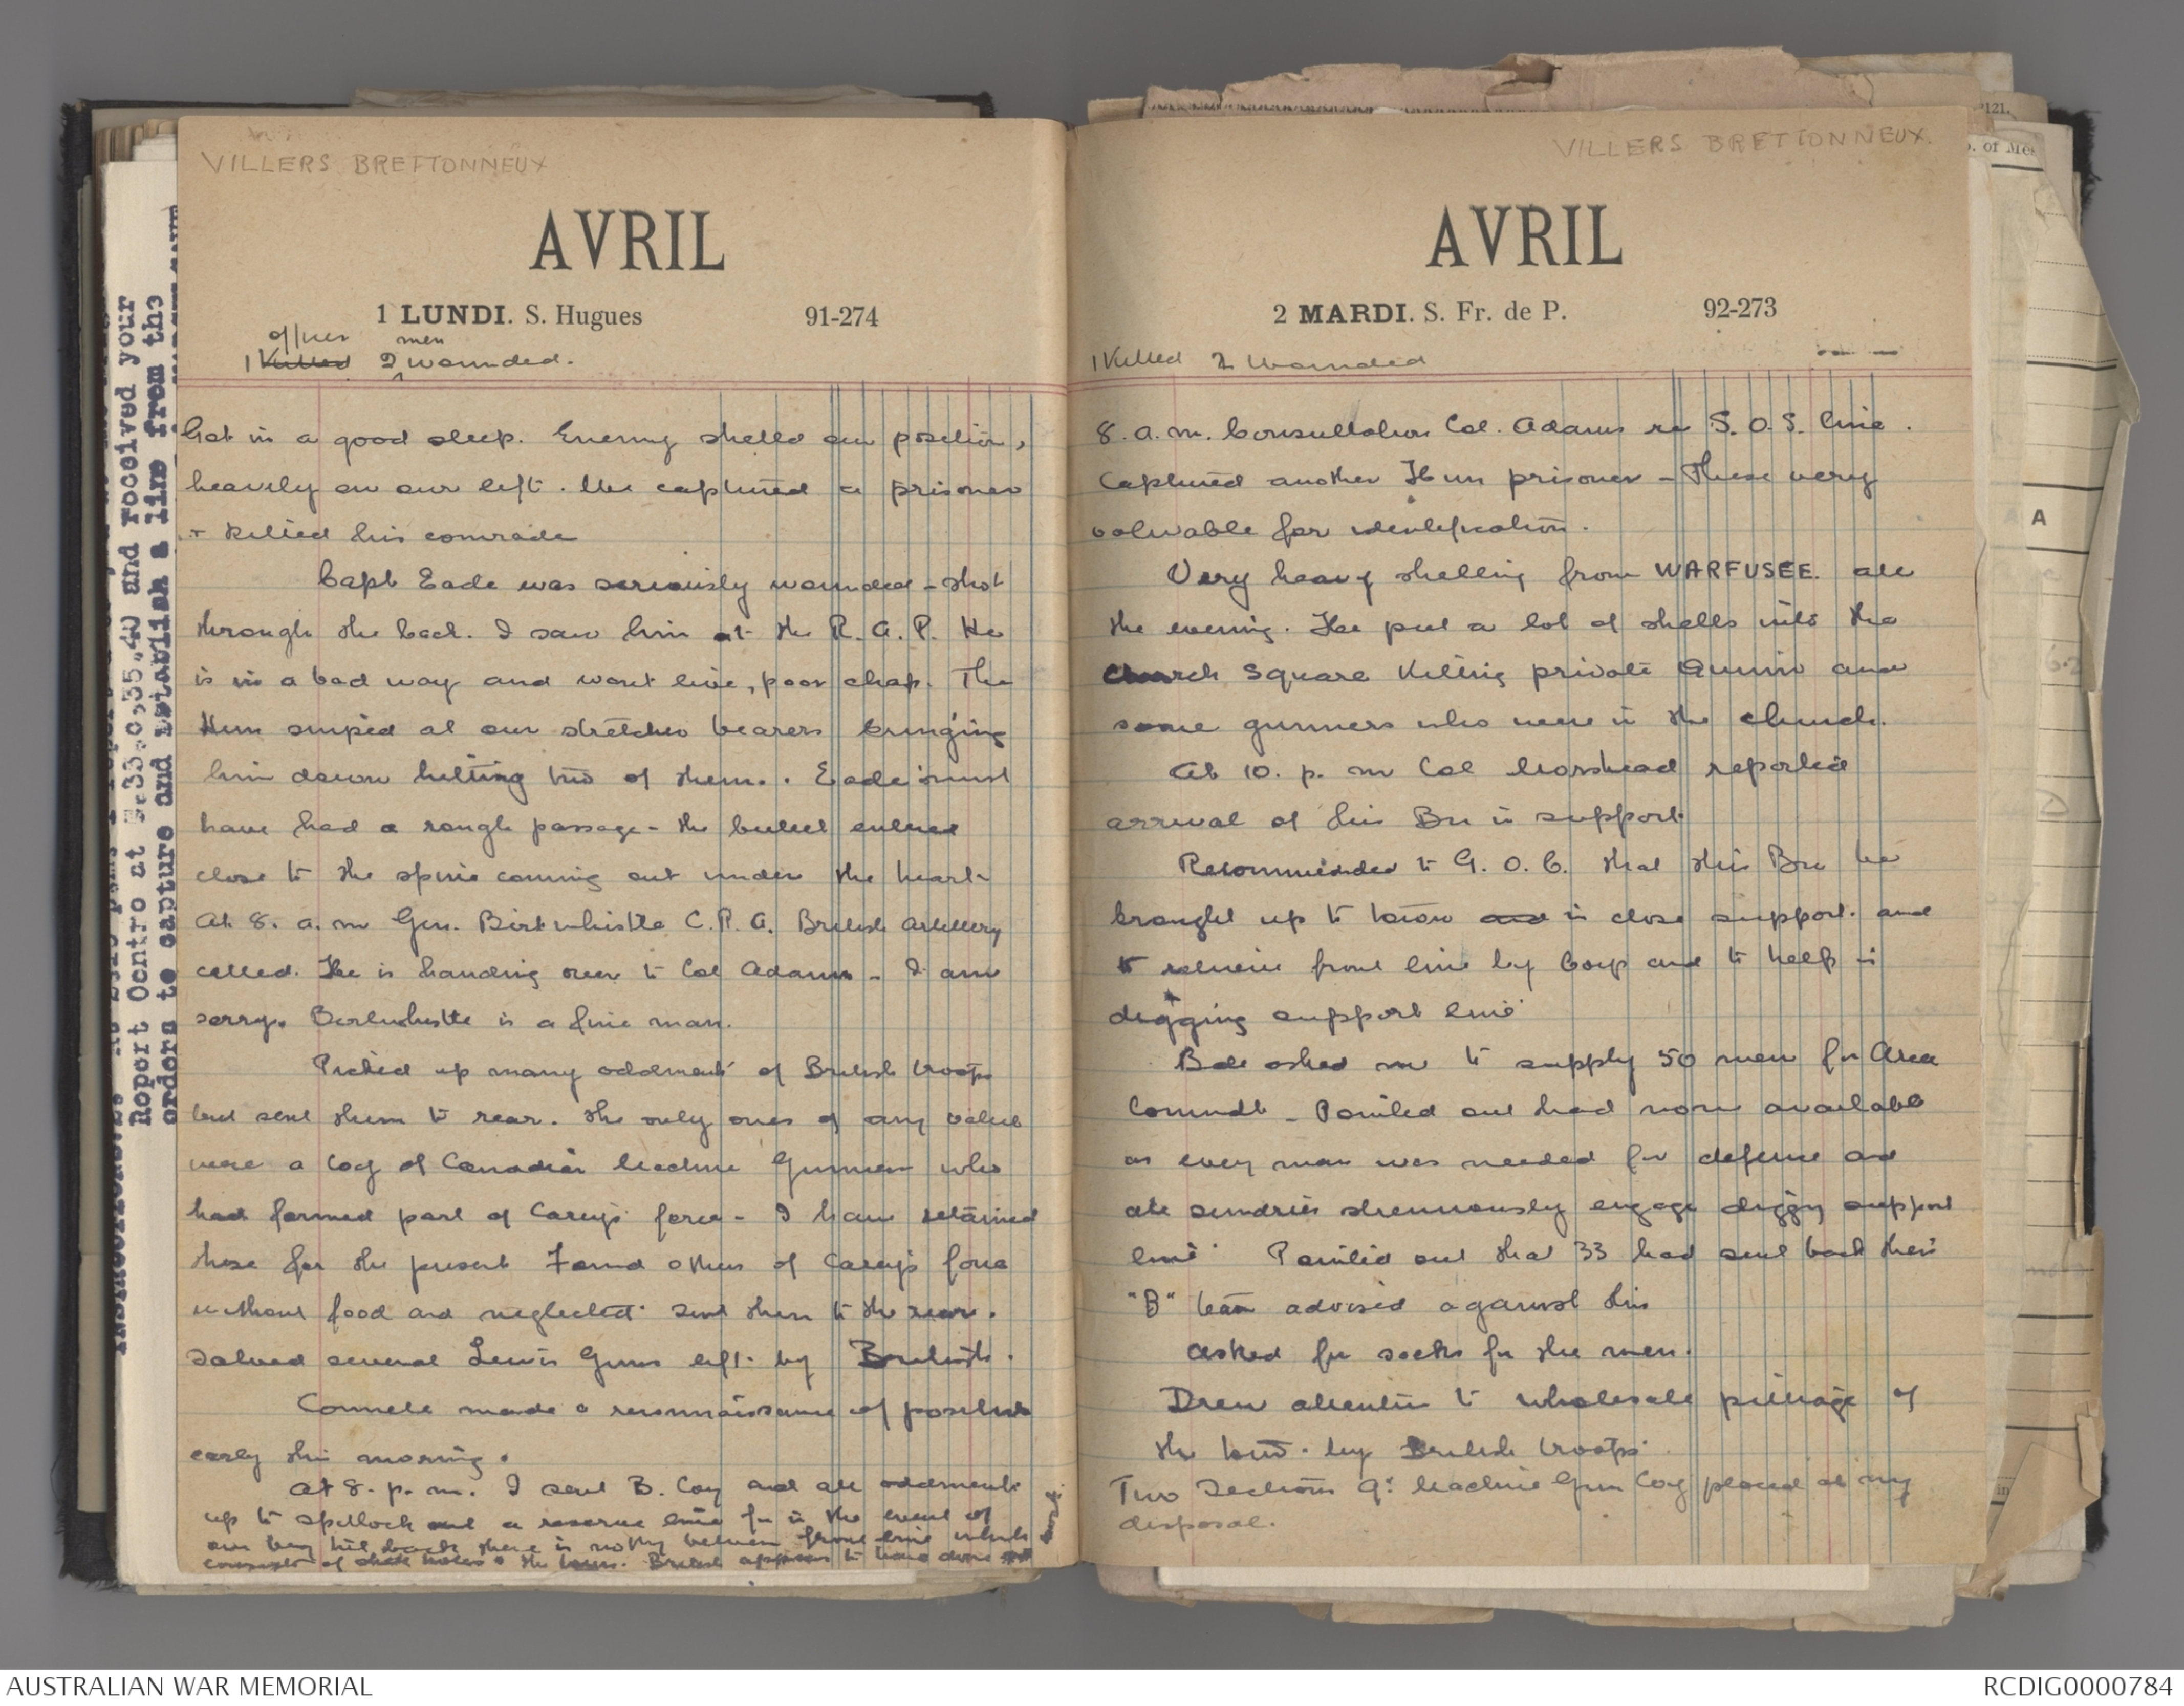 VILLERS BRETTONNEUX
AVRIL
1 LUNDI. S. Hugues 91-274
officer men
1 Killed 2 wounded.
Got in a good sleep. Enemy shelled our position,
heavily on our left. We captured a prisoner
+ killed his comrade
Capt Eade was seriously wounded - shot
through the back. I saw him at the R. A. P. He
is in a bad way and wont live, poor chap. The
Hun sniped at our stretcher bearers bringing
him down hitting two of them. Eade must
have had a rough passage - the bullet entered
close to the spine coming out under the heart.
At 8. a. m Gen. Birtwhistle C. R. A. British Artillery
called. He is handing over to Col Adams - I am
sorry. Birtwhistle is a fine man.
Picked up many oddments of British troops
but sent them to rear. The only ones of any value
were a Coy of Canadian Machine Gunners who
had formed part of Carey's force - I have retained
these for the present Found others of Carey's force
without food and neglected sent them to the rear.
Salved several Lewis Guns left by British.
Connell made a reconnaissance of position
early this morning.
At 8. p. m. I sent B. Coy and all oddments
up to a reserve line for in the event of
our being hit back there is nothing between front line which
consists of shell holes & the town. British appear to have done
VILLERS BRETTONNEUX.
AVRIL
2 MARDI. S. Fr. de P. 92-273
1 Killed 2 Wounded
8. a. m. Consultation Col. Adams re S. O. S. line.
Captured another Hun prisoner - These very
valuable for identification.
Very heavy shelling from WARFUSEE. all
the evening. He put a lot of shells into the
Church Square killing private and
some gunners who were in the church.
At 10. p. m Col Morshead reported
arrival of his Bn in support.
Recommended to G. O. C. that this Bn be
brought up to town and in close support. and
to relieve front line by Coys and to help in
digging support line
Bde asked me to supply 50 men for Area
Comndt - Pointed out had none available
as every man was needed for defence and
all sundries strenuously engage digging support
line Pointed out that 33 had sent back their
"B" team advised against this
Asked for socks for the men.
Drew attention to wholesale pillage of
the town. by British troops
Two Sections 9: Machine Gun Coy placed at my
disposal.
Report Centre at and received your
orders to capture and establish a line from the
A
AUSTRALIAN WAR MEMORIAL
RCDIG0000784